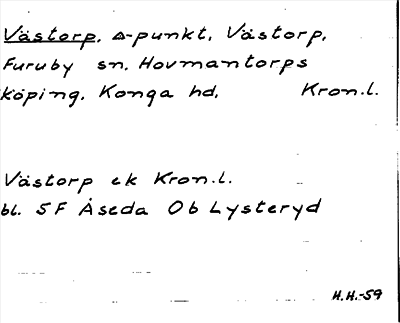 Västorp, △-punkt, Västorp,
Furuby sn. Hovmantorps
köping. Konga hd, Kron.l.
Västorp ek Kron.l.
bl. 5F Åseda Ob Lysteryd
H.H.-59